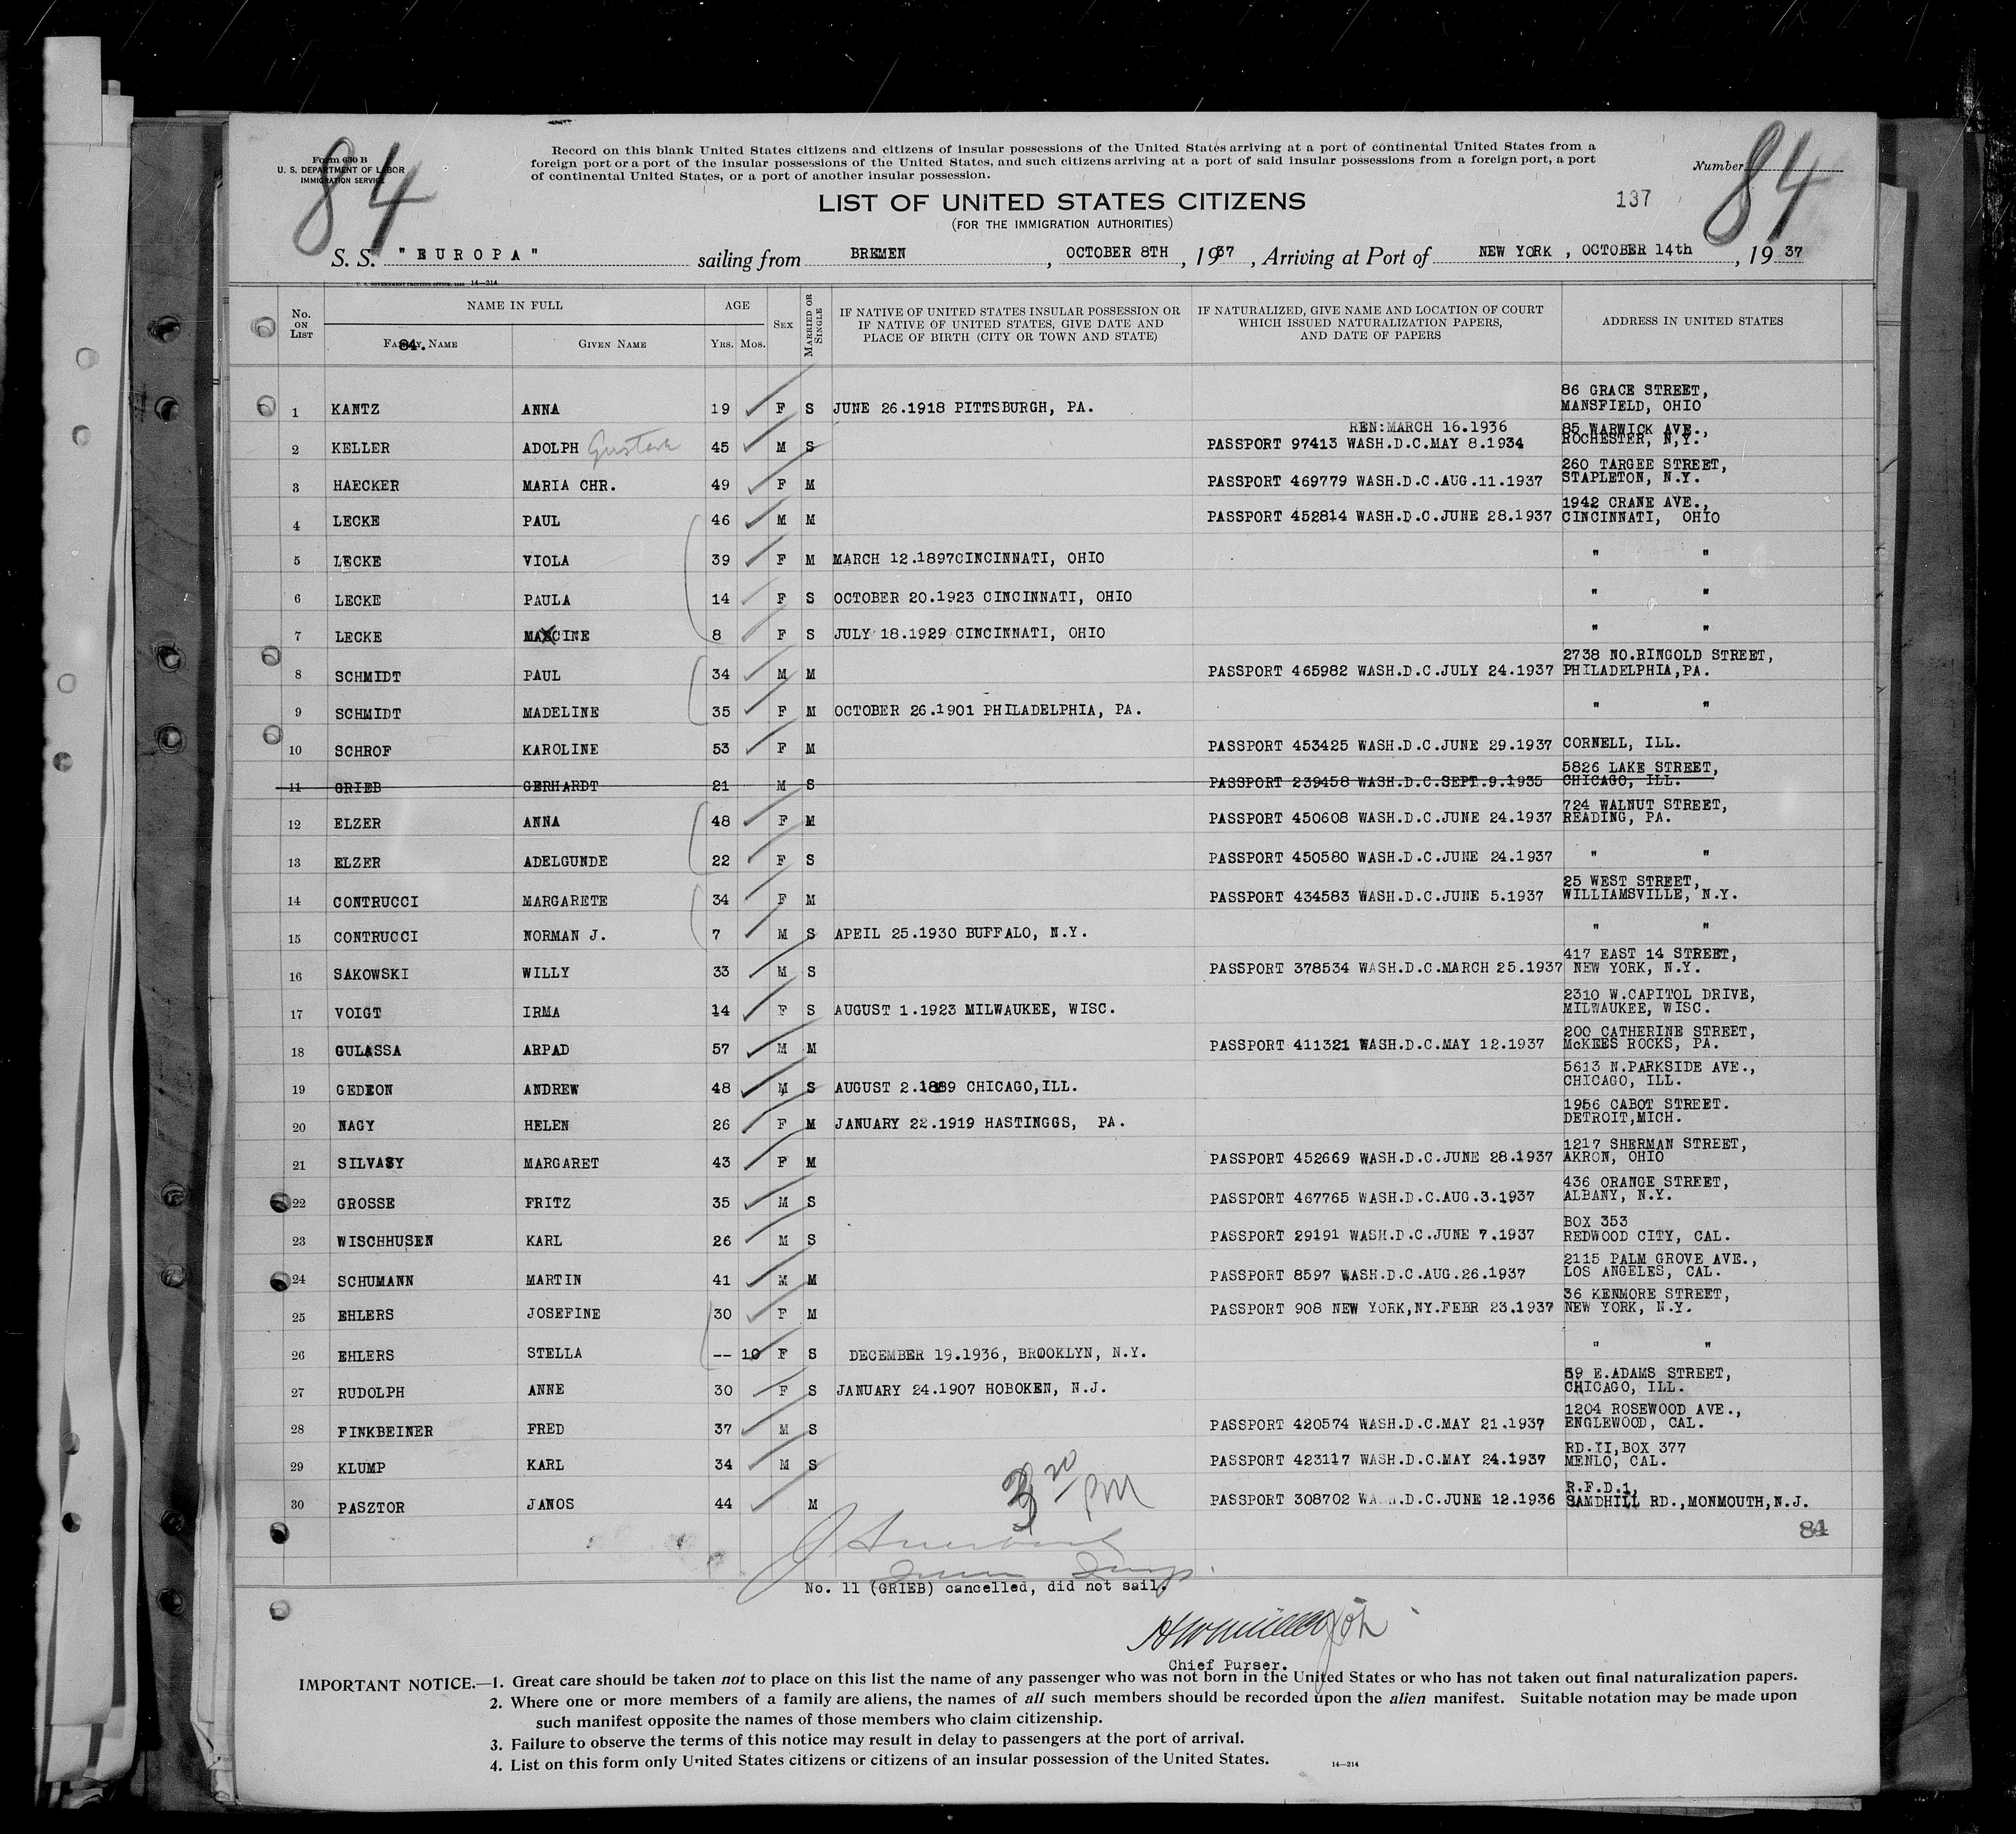 84
Form 630 B
U. S. DEPARTMENT OF LABOR
IMMIGRATION SERVICE
Record on this blank United States citizens and citizens of insular possessions of the United States arriving at a port of continental United States from a
foreign port or a port of the insular possessions of the United States, and such citizens arriving at a port of said insular possessions from a foreign port, a port
of continental United States, or a port of another insular possession.
Number 84
LIST OF UNITED STATES CITIZENS
137
(FOR THE IMMIGRATION AUTHORITIES)
S. S. "EUROPA" sailing from BREMEN, OCTOBER 8TH, 1937, Arriving at Port of NEW YORK, OCTOBER 14th, 1937
14—214
No. ON LIST
NAME IN FULL
84.
FAMILY NAME
GIVEN NAME
AGE
YRS. MOS.
SEX
MARRIED OR SINGLE
IF NATIVE OF UNITED STATES INSULAR POSSESSION OR
IF NATIVE OF UNITED STATES, GIVE DATE AND
PLACE OF BIRTH (CITY OR TOWN AND STATE)
IF NATURALIZED, GIVE NAME AND LOCATION OF COURT
WHICH ISSUED NATURALIZATION PAPERS,
AND DATE OF PAPERS
ADDRESS IN UNITED STATES
86 GRACE STREET,
1 KANTZ ANNA 19 F S JUNE 26.1918 PITTSBURGH, PA. MANSFIELD, OHIO
REN:MARCH 16.1936 85 WARWICK AVE.,
2 KELLER ADOLPH Gustave 45 M S PASSPORT 97413 WASH.D.C.MAY 8.1934 ROCHESTER, N.Y.
260 TARGEE STREET,
3 HAECKER MARIA CHR. 49 F M PASSPORT 469779 WASH.D.C.AUG.11.1937 STAPLETON, N.Y.
1942 CRANE AVE.,
4 LECKE PAUL 46 M M PASSPORT 452814 WASH.D.C.JUNE 28.1937 CINCINNATI, OHIO
5 LECKE VIOLA 39 F M MARCH 12.1897CINCINNATI, OHIO " "
6 LECKE PAULA 14 F S OCTOBER 20.1923 CINCINNATI, OHIO " "
7 LECKE MAXCINE 8 F S JULY 18.1929 CINCINNATI, OHIO " "
2738 NO.RINGOLD STREET,
8 SCHMIDT PAUL 34 M M PASSPORT 465982 WASH.D.C.JULY 24.1937 PHILADELPHIA,PA.
9 SCHMIDT MADELINE 35 F M OCTOBER 26.1901 PHILADELPHIA, PA. " "
10 SCHROF KAROLINE 53 F M PASSPORT 453425 WASH.D.C.JUNE 29.1937 CORNELL, ILL.
5826 LAKE STREET,
11 GRIEB GERHARDT 21 M S PASSPORT 239458 WASH.D.C.SEPT.9.1935 CHICAGO, ILL.
724 WALNUT STREET,
12 ELZER ANNA 48 F M PASSPORT 450608 WASH.D.C.JUNE 24.1937 READING, PA.
13 ELZER ADELGUNDE 22 F S PASSPORT 450580 WASH.D.C.JUNE 24.1937 " "
25 WEST STREET,
14 CONTRUCCI MARGARETE 34 F M PASSPORT 434583 WASH.D.C.JUNE 5.1937 WILLIAMSVILLE, N.Y.
15 CONTRUCCI NORMAN J. 7 M S APEIL 25.1930 BUFFALO, N.Y. " "
417 EAST 14 STREET,
16 SAKOWSKI WILLY 33 M S PASSPORT 378534 WASH.D.C.MARCH 25.1937 NEW YORK, N.Y.
2310 W.CAPITOL DRIVE,
17 VOIGT IRMA 14 F S AUGUST 1.1923 MILWAUKEE, WISC. MILWAUKEE, WISC.
200 CATHERINE STREET,
18 GULASSA ARPAD 57 M M PASSPORT 411321 WASH.D.C.MAY 12.1937 McKEES ROCKS, PA.
5613 N.PARKSIDE AVE.,
19 GEDEON ANDREW 48 M S AUGUST 2.1889 CHICAGO,ILL. CHICAGO, ILL.
1956 CABOT STREET.
20 NAGY HELEN 26 F M JANUARY 22.1919 HASTINGGS, PA. DETROIT,MICH.
1217 SHERMAN STREET,
21 SILVASY MARGARET 43 F M PASSPORT 452669 WASH.D.C.JUNE 28.1937 AKRON, OHIO
436 ORANGE STREET,
22 GROSSE FRITZ 35 M S PASSPORT 467765 WASH.D.C.AUG.3.1937 ALBANY, N.Y.
BOX 353
23 WISCHHUSEN KARL 26 M S PASSPORT 29191 WASH.D.C.JUNE 7.1937 REDWOOD CITY, CAL.
2115 PALM GROVE AVE.,
24 SCHUMANN MARTIN 41 M M PASSPORT 8597 WASH.D.C.AUG.26.1937 LOS ANGELES, CAL.
36 KENMORE STREET,
25 EHLERS JOSEFINE 30 F M PASSPORT 908 NEW YORK,NY.FEBR 23.1937 NEW YORK, N.Y.
26 EHLERS STELLA -- 10 F S DECEMBER 19.1936, BROOKLYN, N.Y. " "
59 E.ADAMS STREET,
27 RUDOLPH ANNE 30 F S JANUARY 24.1907 HOBOKEN, N.J. CHICAGO, ILL.
1204 ROSEWOOD AVE.,
28 FINKBEINER FRED 37 M S PASSPORT 420574 WASH.D.C.MAY 21.1937 ENGLEWOOD, CAL.
RD.II,BOX 377
29 KLUMP KARL 34 M S PASSPORT 423117 WASH.D.C.MAY 24.1937 MENLO, CAL.
R.F.D.1,
30 PASZTOR JANOS 44 M PASSPORT 308702 WASH.D.C.JUNE 12.1936 SAMDHILL RD.,MONMOUTH,N.J.
3 20 PM
84
No. 11 (GRIEB) cancelled, did not sail.
Chief Purser.
IMPORTANT NOTICE.—1. Great care should be taken not to place on this list the name of any passenger who was not born in the United States or who has not taken out final naturalization papers.
2. Where one or more members of a family are aliens, the names of all such members should be recorded upon the alien manifest. Suitable notation may be made upon
such manifest opposite the names of those members who claim citizenship.
3. Failure to observe the terms of this notice may result in delay to passengers at the port of arrival.
4. List on this form only United States citizens or citizens of an insular possession of the United States.
14—214